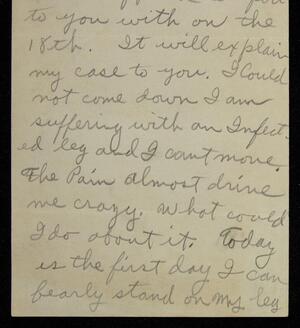 to you with on the
18th. It will explain
my case to you. I Could
not come down I am
suffering with an Infect-
ed leg and I cant move.
The Pain almost drive
me crazy. What could
I do about it. Today
is the first day I can
bearly stand on my leg